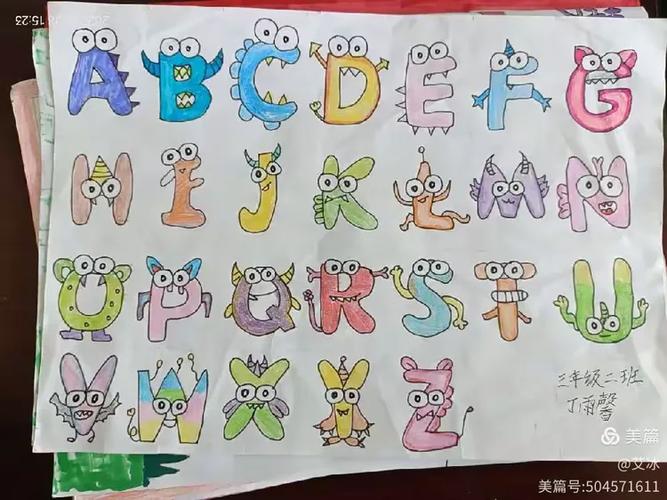 A B C D E F G
H I J K L M N
O P Q R S T U
V W X Y Z
三年级二班
丁雨馨
美篇
@艾冰
美篇号:504571611